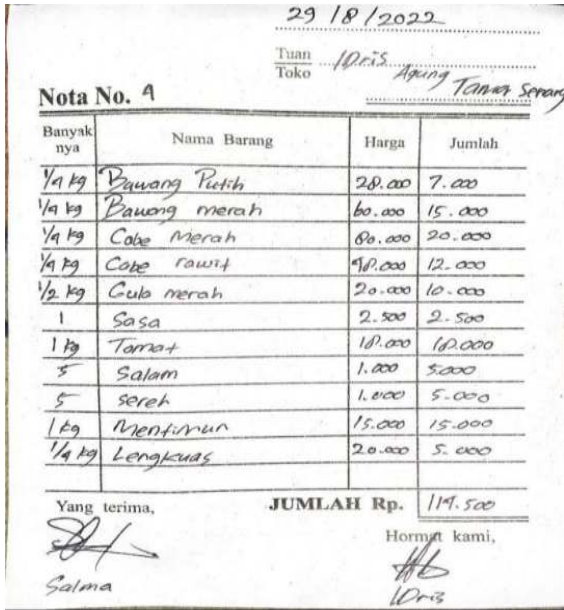 29/8/2022
Tuan
Toko
IDris
Agung Taman Serang
Nota No. 4
Banyak nya Nama Barang Harga Jumlah
1/4 kg Bawang Putih 28.000 7.000
1/4 kg Bawang merah 60.000 15.000
1/4 kg Cabe Merah 80.000 20.000
1/4 kg Cabe rawit 48.000 12.000
1/2 kg Gula merah 20.000 10.000
1 Sasa 2.500 2.500
1 kg Tomat 18.000 18.000
5 Salam 1.000 5.000
5 sereh 1.000 5.000
1 kg Mentimun 15.000 15.000
1/4 kg Lengkuas 20.000 5.000
JUMLAH Rp. 114.500
Yang terima, Hormat kami,
Salma IDris